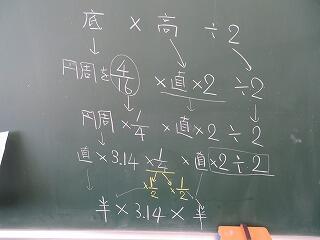 底 × 高 ÷2
円周を4/16 ×直×2 ÷2
円周×1/4 ×直×2÷2
直×3.14×1/4 ×直×2÷2
×1/2 ×1/2
半×3.14×半